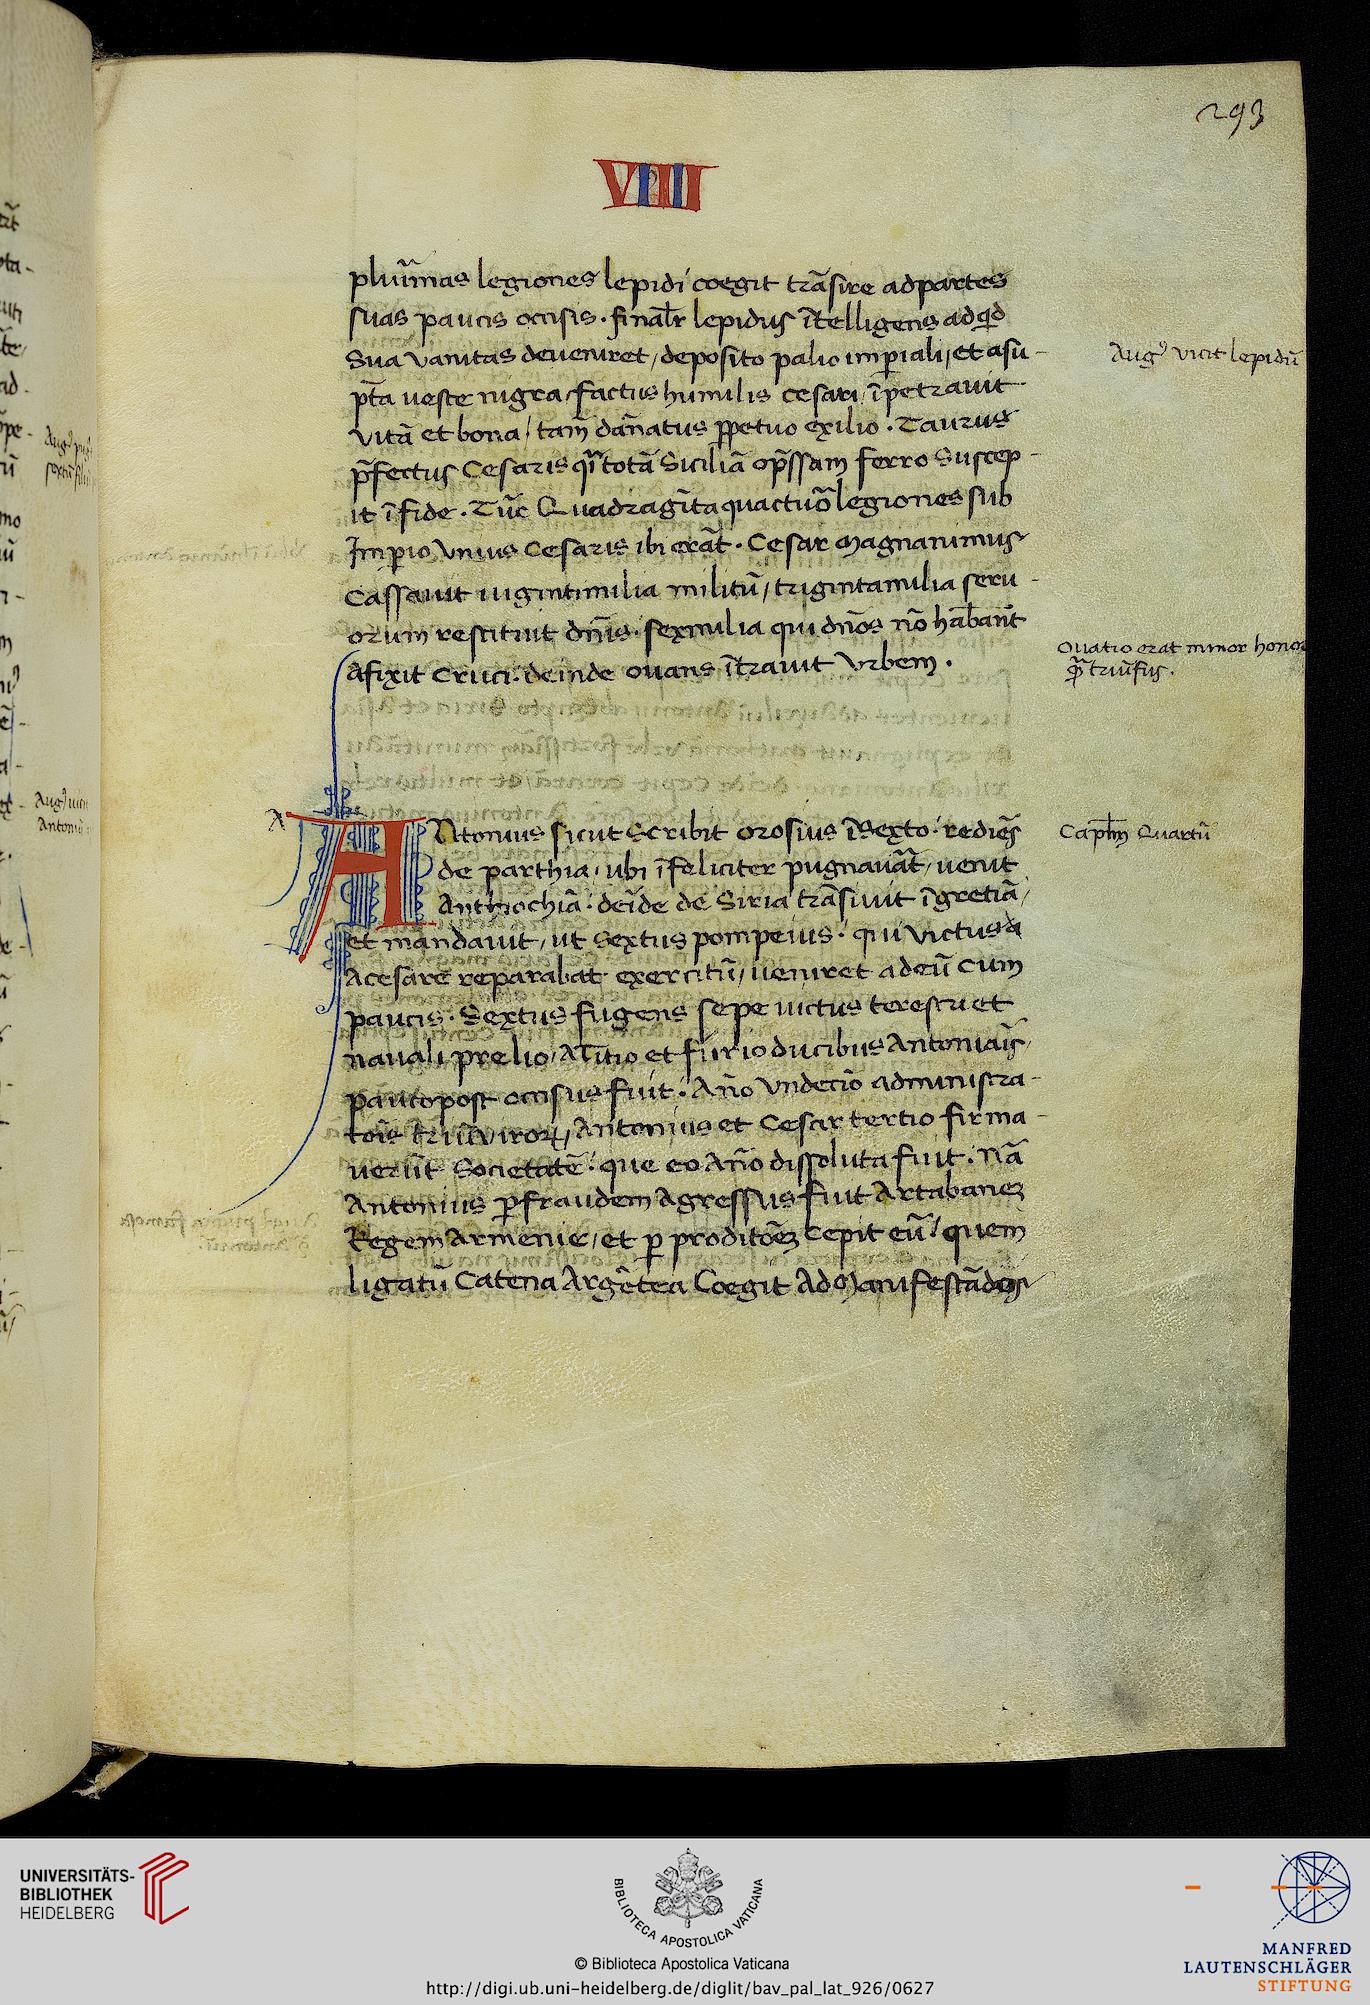 293
VIIII
pluri͂mas legiones lepidi coegit trãsire ad partes
suas paucis occisis. finalr̃ lepidus ĩtelligens ad qd̃
Sua vanitas deueniret, deposito palio imp̱iali, et asu-
pt̃a ueste nigra, factus humilis Cesari, ĩpetrauit
vitã et bona, tam̃ dãnatus p̱petuo exilio. Taurus
p̃fectus Cesaris totã Siciliã op̃ssam ferro Suscep-
it ĩ fide. Tũc Quadragĩta quactuor̃ legiones sub
Imp̱io Vnius Cesaris ibi erãt. Cesar magnanimus
Cassauit uigintimilia militũ, trigintamilia seru-
orum restituit dñis. sexmilia qui dños nõ habãnt
Afixit Cruci. deinde ouans ĩtrauit Vrbem.
Aug9 vicit lepidũ
Ouatio erat minor honor
q̃ triũfus.
A
ANtonius sicut Scribit orosius ĩ Sexto. rediẽs
de parthia, ubi ĩfeliciter pugnauãt, uenit
Anthiochiã. deĩde de Siria trãsiuit ĩ gretiã,
et mandauit, ut Sextus pompeius. qui victus
a cesare reparabat exercitũ, ueniret ad eũ cum
paucis. Sextus fugens sepe uictus terestri et
nauali prelio, A Titio et furio ducibus Antoniaĩs,
paucopost occisus fuit. Año Vndecio͂ administra-
tois triũvirorꝝ, Antonius et Cesar tertio firma-
uerũt Societatẽ. que eo Año dissoluta fuit. Nã
Antonius p̱ fraudem Agressus fuit Artabanez
Regem Armenie, et p̱ proditõez Cepit eũ. quem
ligatũ Catena Argẽtea Coegit Ad Manifestãdos
Capl̃m Quartũ
UNIVERSITÄTS-
BIBLIOTHEK
HEIDELBERG
BIBLIOTECA APOSTOLICA VATICANA
© Biblioteca Apostolica Vaticana
http://digi.ub.uni-heidelberg.de/diglit/bav_pal_lat_926/0627
MANFRED
LAUTENSCHLÄGER
STIFTUNG